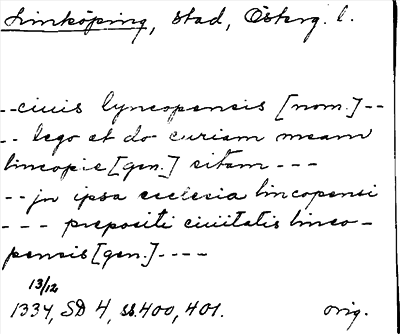 Linköping, stad, Österg. l.
--ciuis lyncopensis [nom.]--
-- lego et do curiam meam
lincopie [gen.] sitam ---
-- jn ipsa ecclesia lincopensi
--- prepositi ciuitatis linco-
pensis [gen.]----
13/12
1334, SD 4, ss. 400, 401. orig.